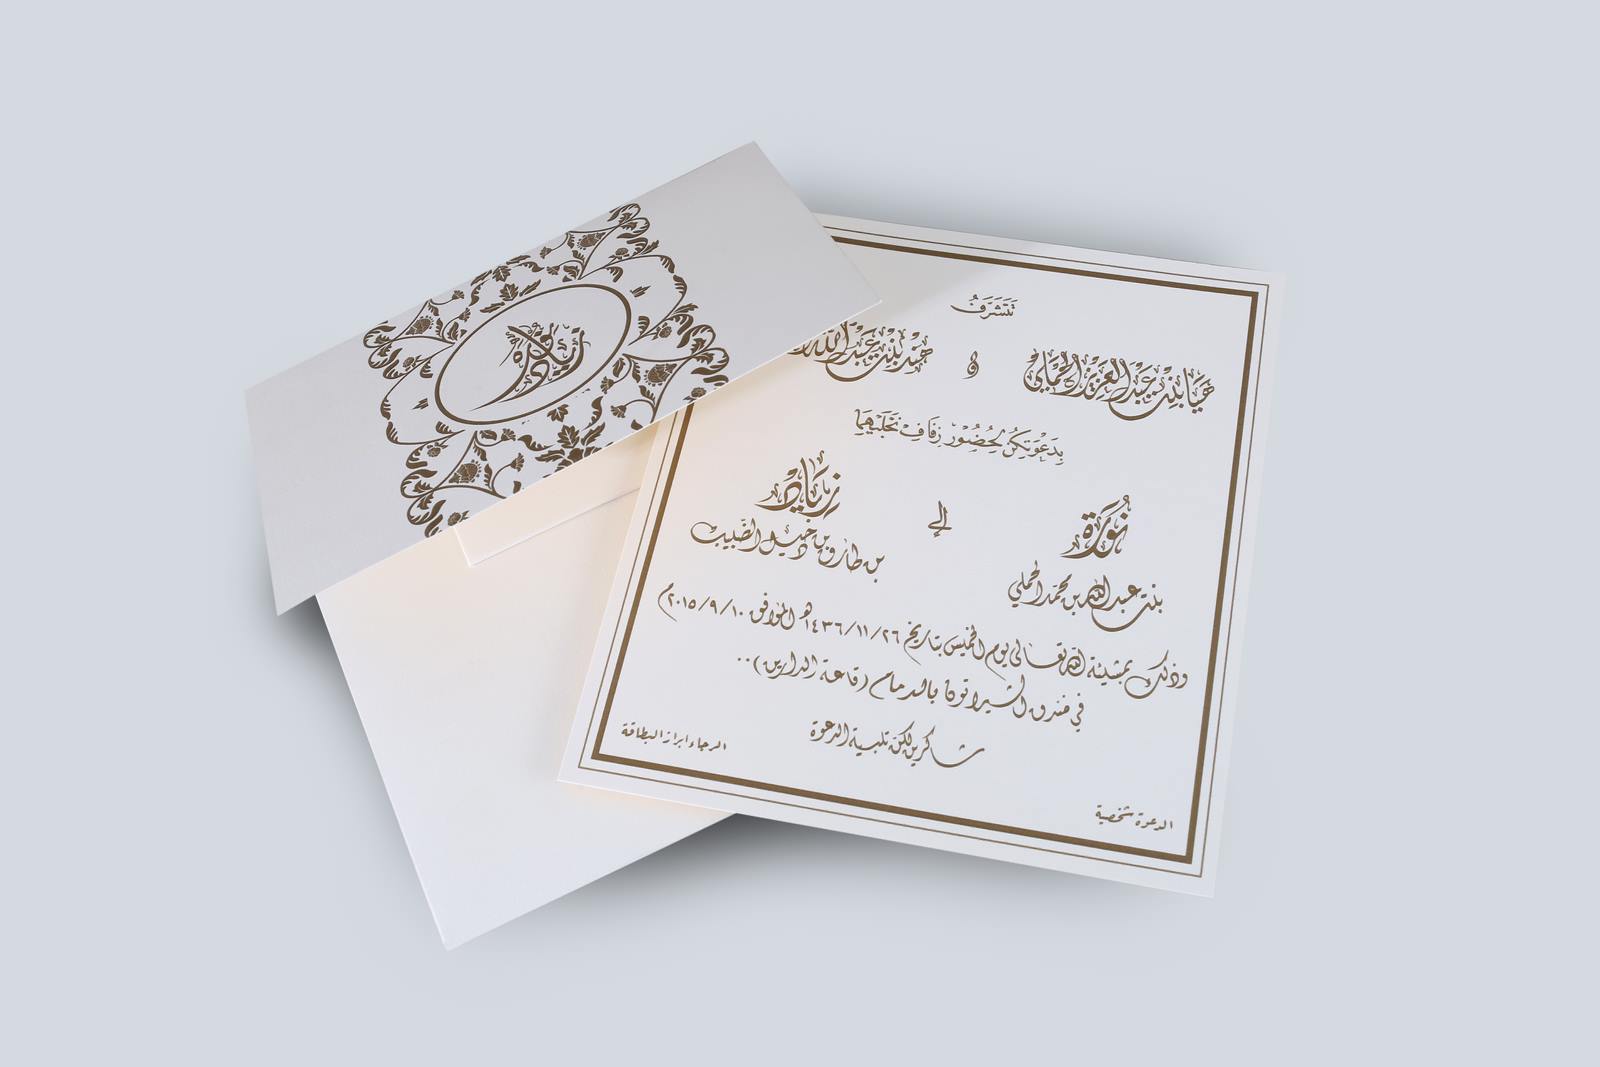 زياد نورة
تَتَشَرَّفُ
هيا بنت عبد العزيز الحملي و هند بنت عبد الله
بِدَعْوَتِكُنَّ لِحُضُورِ زِفَافِ نَجْلَيْهِمَا
نُورَة إلى زِيَاد
بنت عبدالله بن محمد الحملي بن طارق بن دخيل الضبيب
وذلك بمشيئة الله تعالى يوم الخميس بتاريخ ٢٦/١١/١٤٣٦هـ الموافق ١٠/٩/٢٠١٥م
في فندق الشيراتون بالدمام (قاعة الدارين)..
شاكرين لكن تلبية الدعوة
الرجاء ابراز البطاقة
الدعوة شخصية